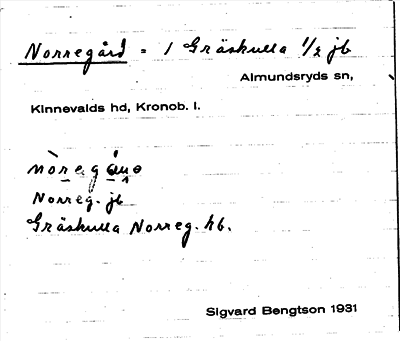 Norregård = 1 Gräskulla 1/2 jb
Almundsryds sn,
Kinnevalds hd, Kronob. l.
Norreg. jb
Gräskulla Norreg. hb.
Sigvard Bengtson 1931